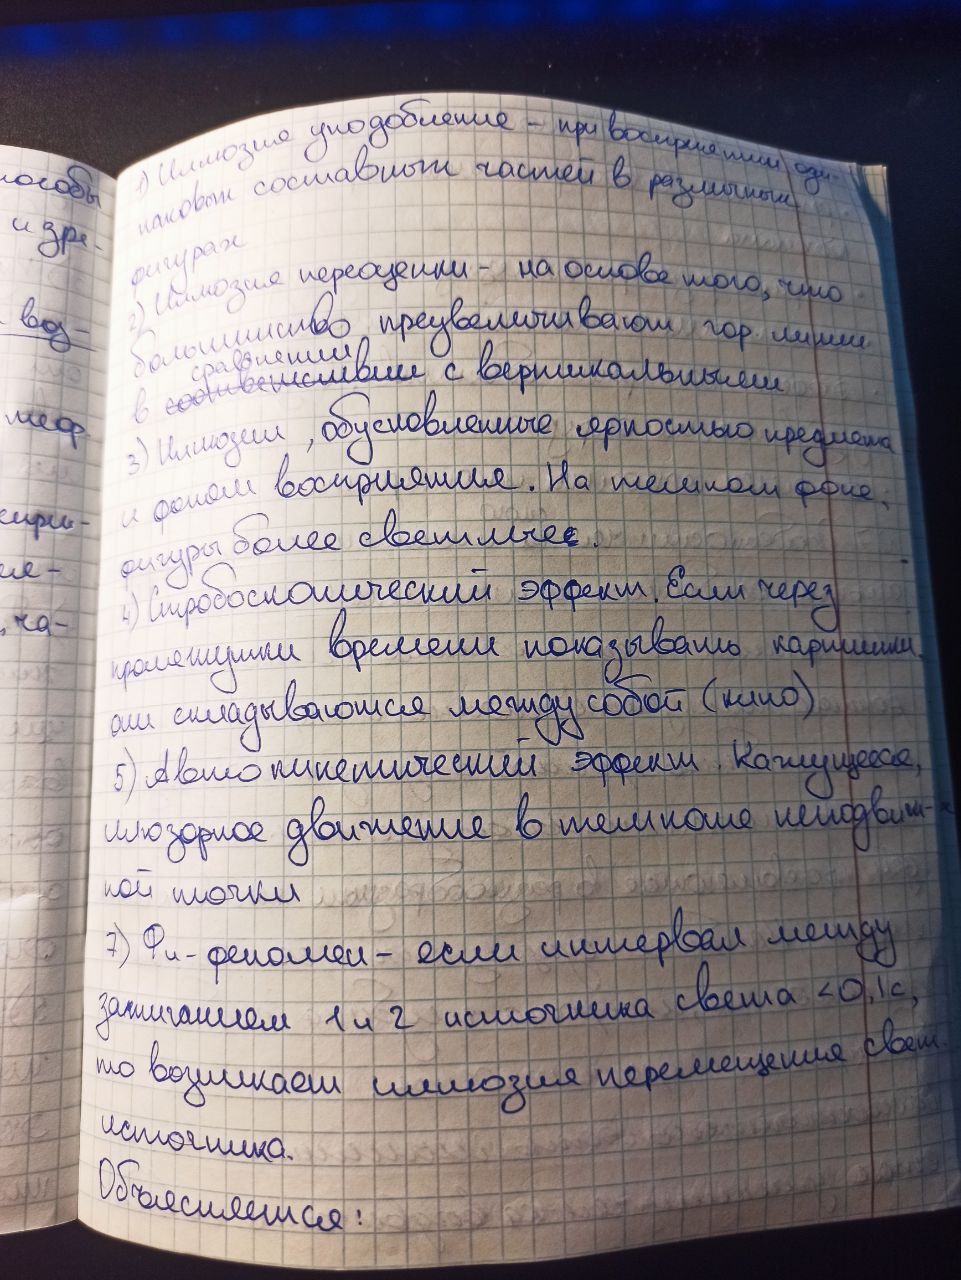 1) Иллюзия уподобление – при восприятии оди-
наковых составных частей в различных
фигурах
2) Иллюзия переоценки – на основе того, что
большинство преувеличивают гор. линии
сравнении
в соответствии с вертикальными
3) Иллюзии, обусловленные яркостью предмета
и фоном восприятия. На темном фоне,
фигуры более светлые.
4) Стробоскопический эффект. Если через
промежутки времени показывать картинки,
они складываются между собой (кино)
5) Автокинетический эффект. Кажущееся,
иллюзорное движение в темноте неподвиж-
ной точки
7) Фи-феномен – если интервал между
зажиганием 1 и 2 источника света <0,1с,
то возникает иллюзия перемещения свет.
источника.
Объясняется:
пособы
и зре-
воз-